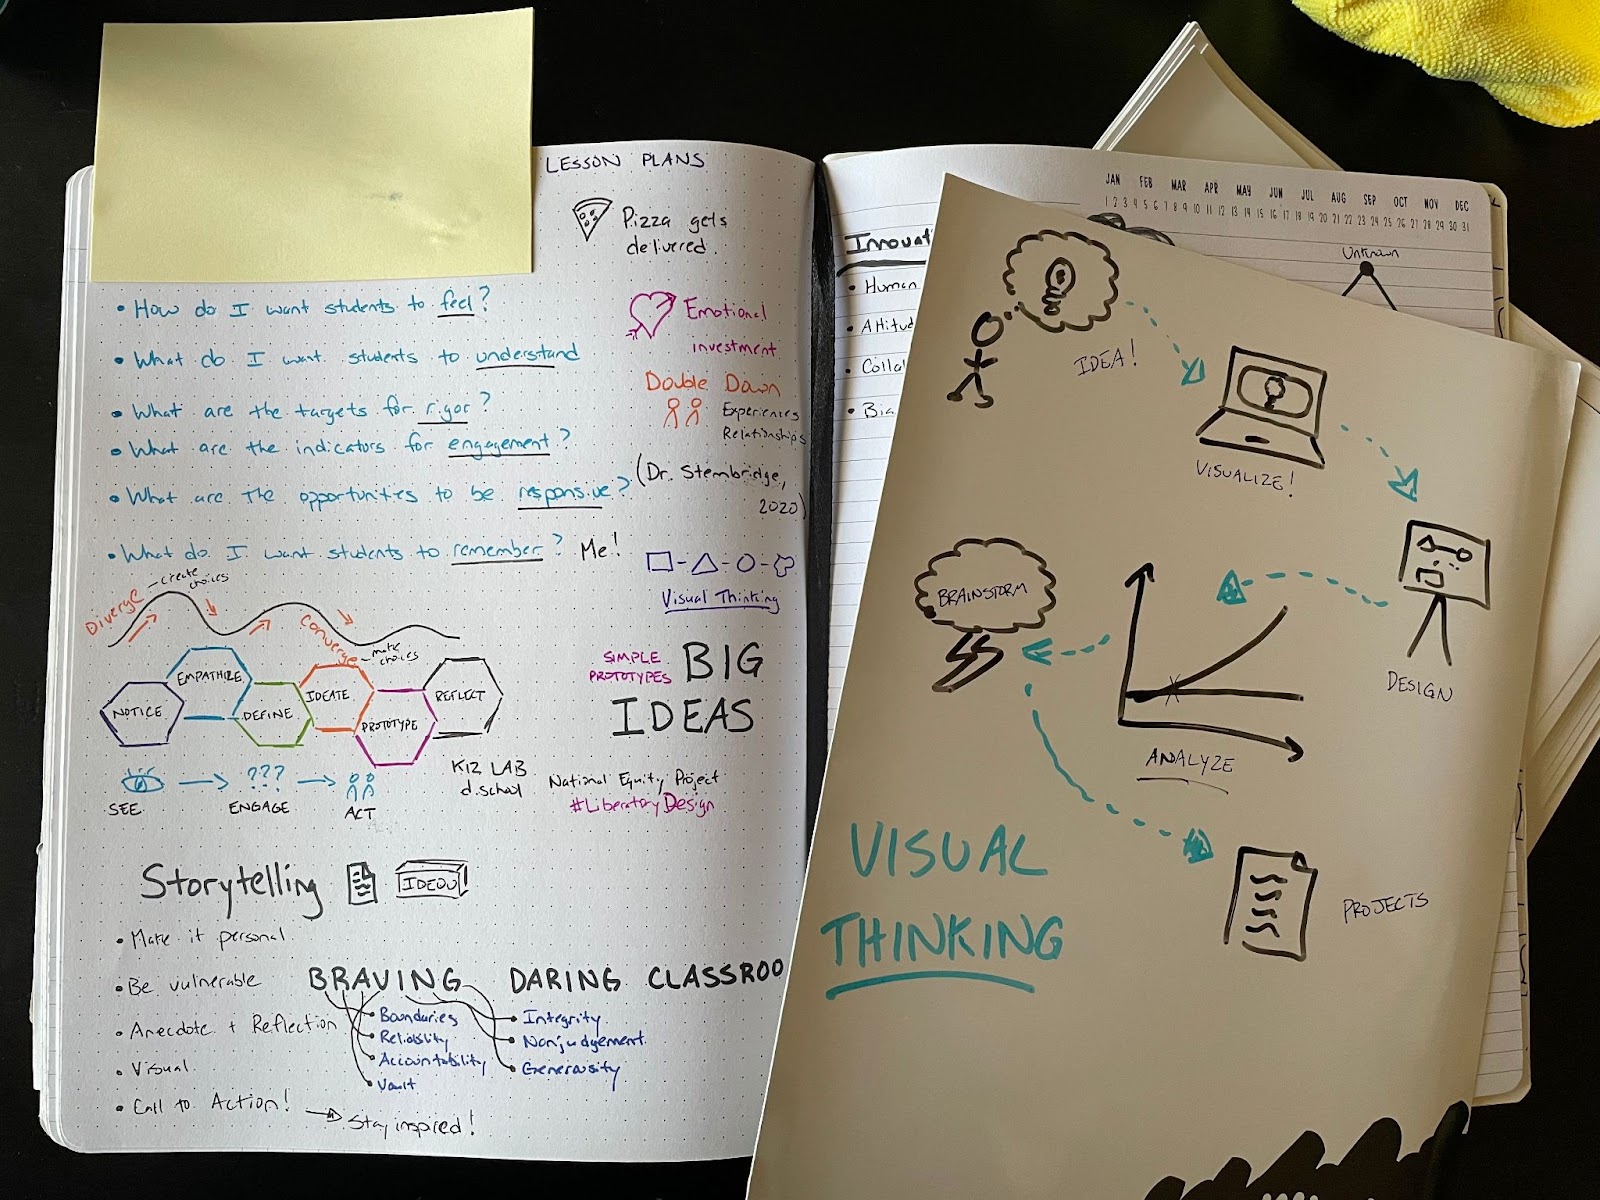 LESSON PLANS
Pizza gets
delivered.
• How do I want students to feel?
• What do I want students to understand
• What are the targets for rigor?
• What are the indicators for engagement?
• What are the opportunities to be responsive?
• What do I want students to remember? Me!
Emotional
investment
Double Down
Experiences
Relationships
(Dr. Stembridge,
2020)
Visual Thinking
Diverge
create
choices
Converge
make
choices
NOTICE
EMPATHIZE
DEFINE
IDEATE
PROTOTYPE
REFLECT
SEE
???
ENGAGE
ACT
K12 LAB
d.school
SIMPLE
PROTOTYPES
BIG
IDEAS
National Equity Project
#LiberatoryDesign
Storytelling
IDEOU
• Make it personal
• Be vulnerable
• Anecdote + Reflection
• Visual
• Call to Action!
Stay inspired!
BRAVING
DARING CLASSROO
• Boundaries
• Reliability
• Accountability
• Vault
• Integrity
• Nonjudgement
• Generousity
Innovat
• Human
• Attitud
• Collab
JAN FEB MAR APR MAY JUN JUL AUG SEP OCT NOV DEC
1 2 3 4 5 6 7 8 9 10 11 12 13 14 15 16 17 18 19 20 21 22 23 24 25 26 27 28 29 30 31
Unknown
IDEA!
VISUALIZE!
DESIGN
ANALYZE
BRAINSTORM
PROJECTS
VISUAL
THINKING